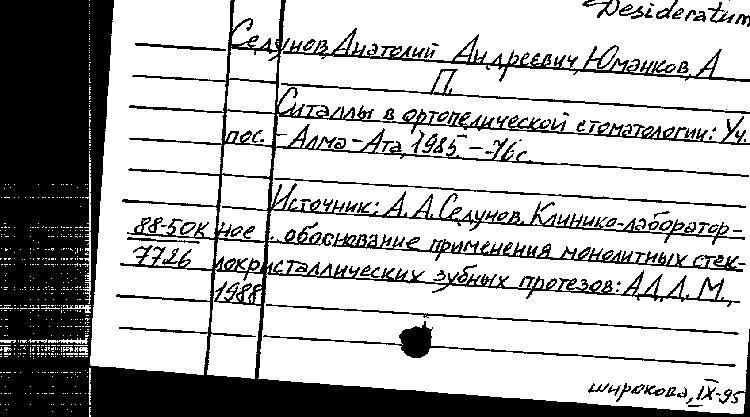 Desideratum
Седунов, Анатолий Андреевич, Юманков, А
П.
Ситаллы в ортопедической стоматологии: Уч.
пос. - Алма-Ата, 1985. - 76 с.
Источник: А. А. Седунов. Клинико-лаборатор-
88-50К ное обоснование применения монолитных стек-
7726 локристаллических зубных протезов: АД, Д. М.,
1988
широкова, IX-95